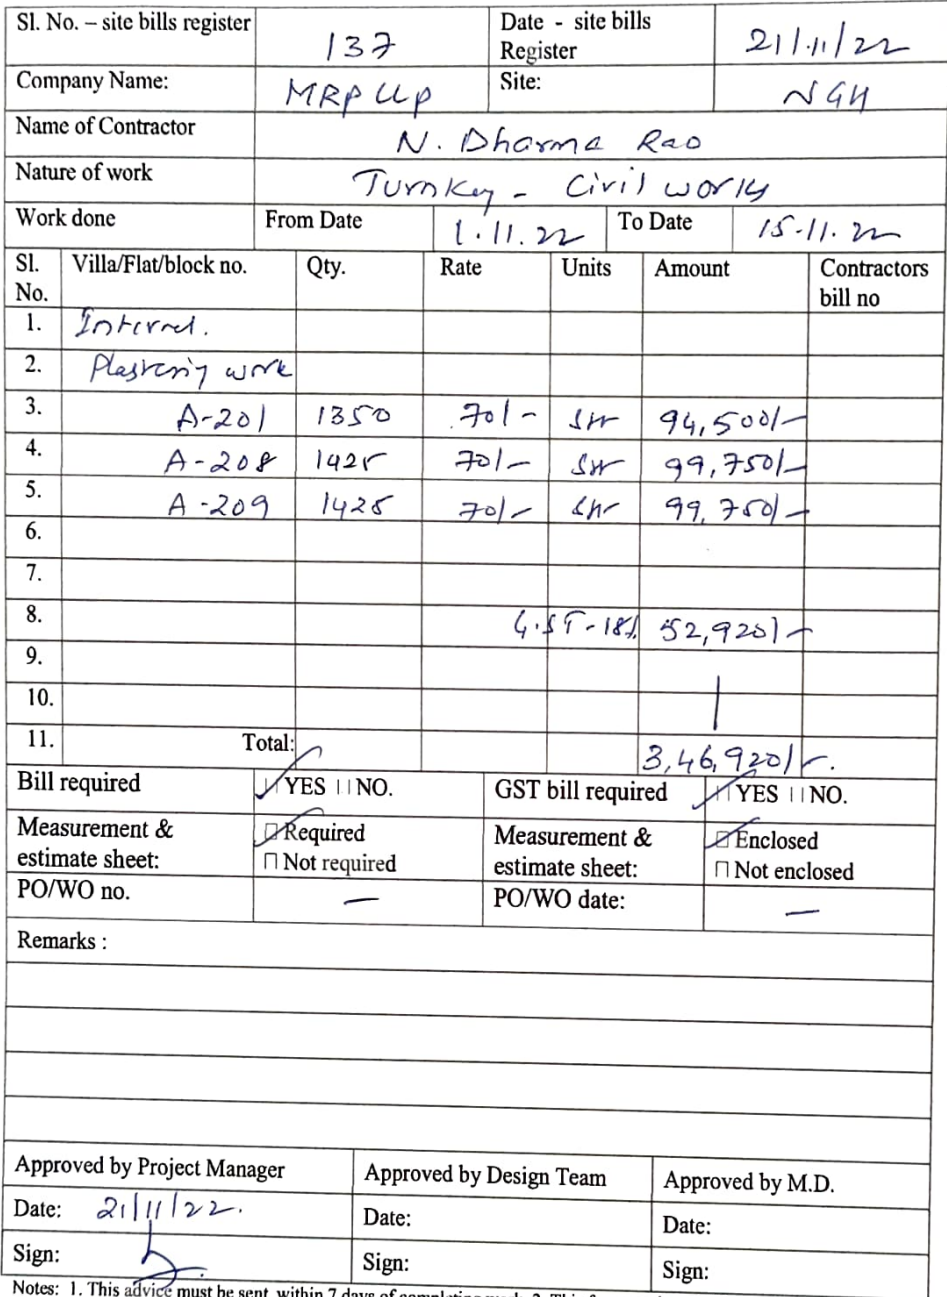 Sl. No. – site bills register 137 Date - site bills Register 21/11/22
Company Name: MRP LLP Site: NGH
Name of Contractor N. Dharma Rao
Nature of work Turnkey - Civil works
Work done From Date 1.11.22 To Date 15.11.22
Sl. No. Villa/Flat/block no. Qty. Rate Units Amount Contractors bill no
1. Internal.
2. Plastering work
3. A-201 1350 70/- 94,500/-
4. A-208 1425 70/- 99,750/-
5. A-209 1425 70/- 99,750/-
6.
7.
8. G.ST-18% 52,920/-
9.
10.
11. Total: 3,46,920/-.
Bill required YES NO. GST bill required YES NO.
Measurement & estimate sheet: Required Measurement & estimate sheet: Enclosed
Not required Not enclosed
PO/WO no. — PO/WO date: —
Remarks :
Approved by Project Manager Approved by Design Team Approved by M.D.
Date: 21/11/22. Date: Date:
Sign: Sign: Sign:
Notes: 1. This advice must be sent within 7 days of